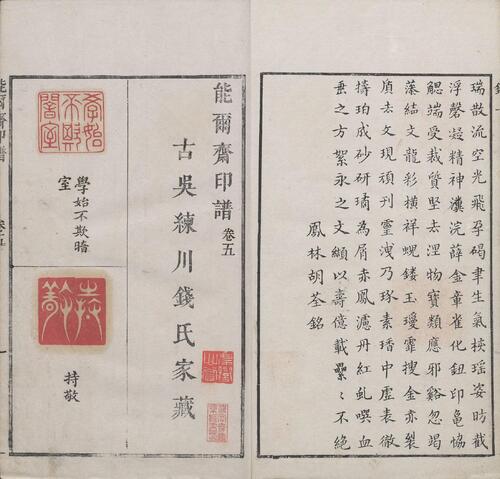 瑞散流空光飛孕碣聿生氣挾瑶姿昉截
浮磬凝精神浣薛金章雀化鈕印龜恊
端受裁質堅去物寶類應邪谿忽竭
藻結文龍彩橫祥蜺鏤玉霏搜金亦製
去文現頑刊靈洩乃琢素中虛表徹
珀成砂研璚為屑赤鳳濾丹紅虬噀血
垂之方絮永之文纈以壽億載纍〻不絶
鳳林胡荃銘
能爾齋印譜 卷五
古吳練川錢氏家藏
學始不欺闇室
學始不欺暗
室
持敬
持敬
能爾齋印譜
卷五